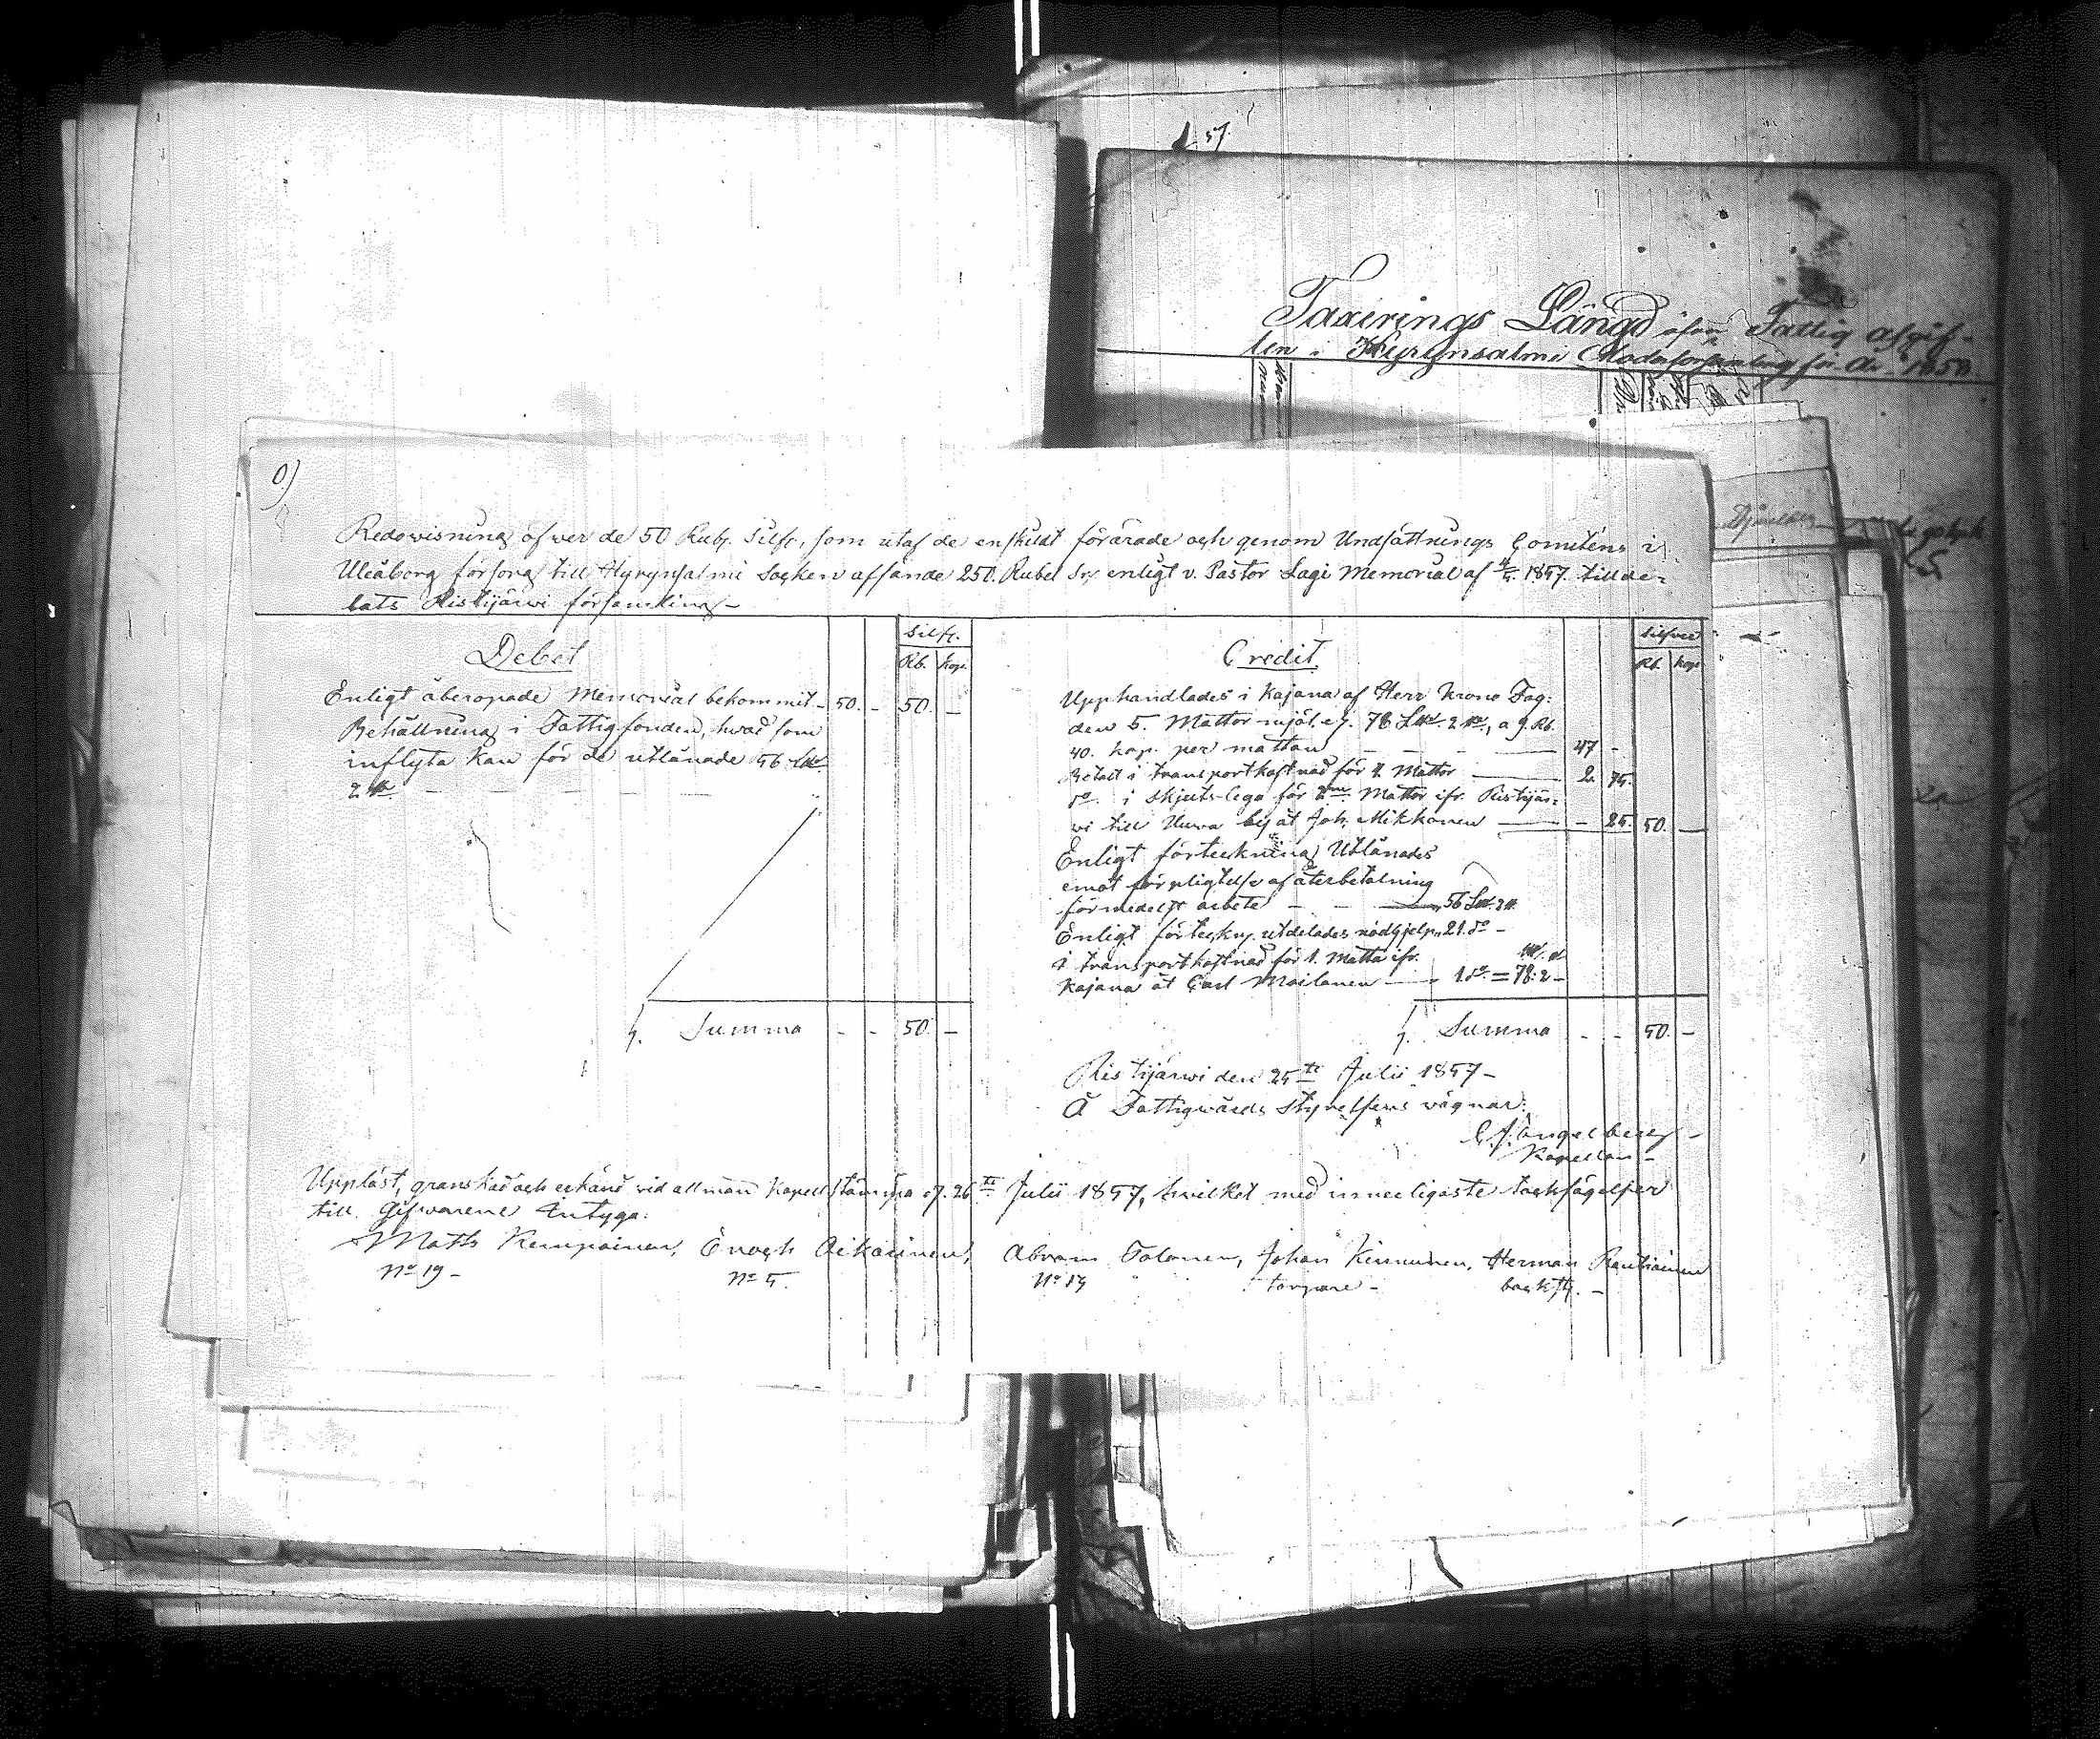 57.
Taxerings Längd öfver Fattig afgif-
ten i Hyrynsalmi Moderförsamling för År 1850
0)
Redowisning öfwer de 50 Rub. Silfr, som utaf de enskildt förärade och genom Undsättnings Comiténs i
Uleåborg försorg till Hyrynsalmi Socken afsände 250. Rubel Sr, enligt v. Pastor Lagi Memorial af 1857. tillde-
lats Ristijärwi församling -
Debet
Silfr.
Rb. kop.
Enligt åberopade Memorial bekommit - 50. - 50. -
Behållning i Fattigfonden, hwad som
inflyta kan för de utlånade 56 L℔.
2 ℔
Summa - - 50. -
Credit
Silfver
Rb. kop
Upphandlades i Kajana af Herr Krono Fog:
den 5. Mattor mjöl. 78 L℔. 2 ℔., a 9. Rb.
40. kop. per mattan 47 -
Betalt i transportkostnad för 4. Mattor 2. 75.
do. i Skjuts-lega för Mattor ifr. Ristijär-
wi till Uura by åt Joh. Mikkonen - 25. 50. -
Enligt förteckning Utlånades
emot förpligtelse af återbetalning
förmedelst arbete 56 L℔. 2 ℔.
Enligt förteckn. utdelades nödhjelp 21. do -
i transportkostnad för 1. Matta ifr.
Kajana åt Carl Moilanen 1. do. = 78: 2 -
Summa - - 50. -
Ristijärwi den 25te Julii 1857 -
Å Fattigwårds Styrelsens wägnar:
Engelberg -
Kapellan -
Uppläst, granskad och erkänd vid allmän Kapellstämma d. 26te Julii 1857, hwilket med innerligaste tacksägelser
till Gifwarene Intyga:
Matts Kemppainen, Enoch Oikarinen, Abram Tolonen, Johan Kinnunen, Herman Rautiainen
No 19 - No 5. No 14 torpare - backst. -